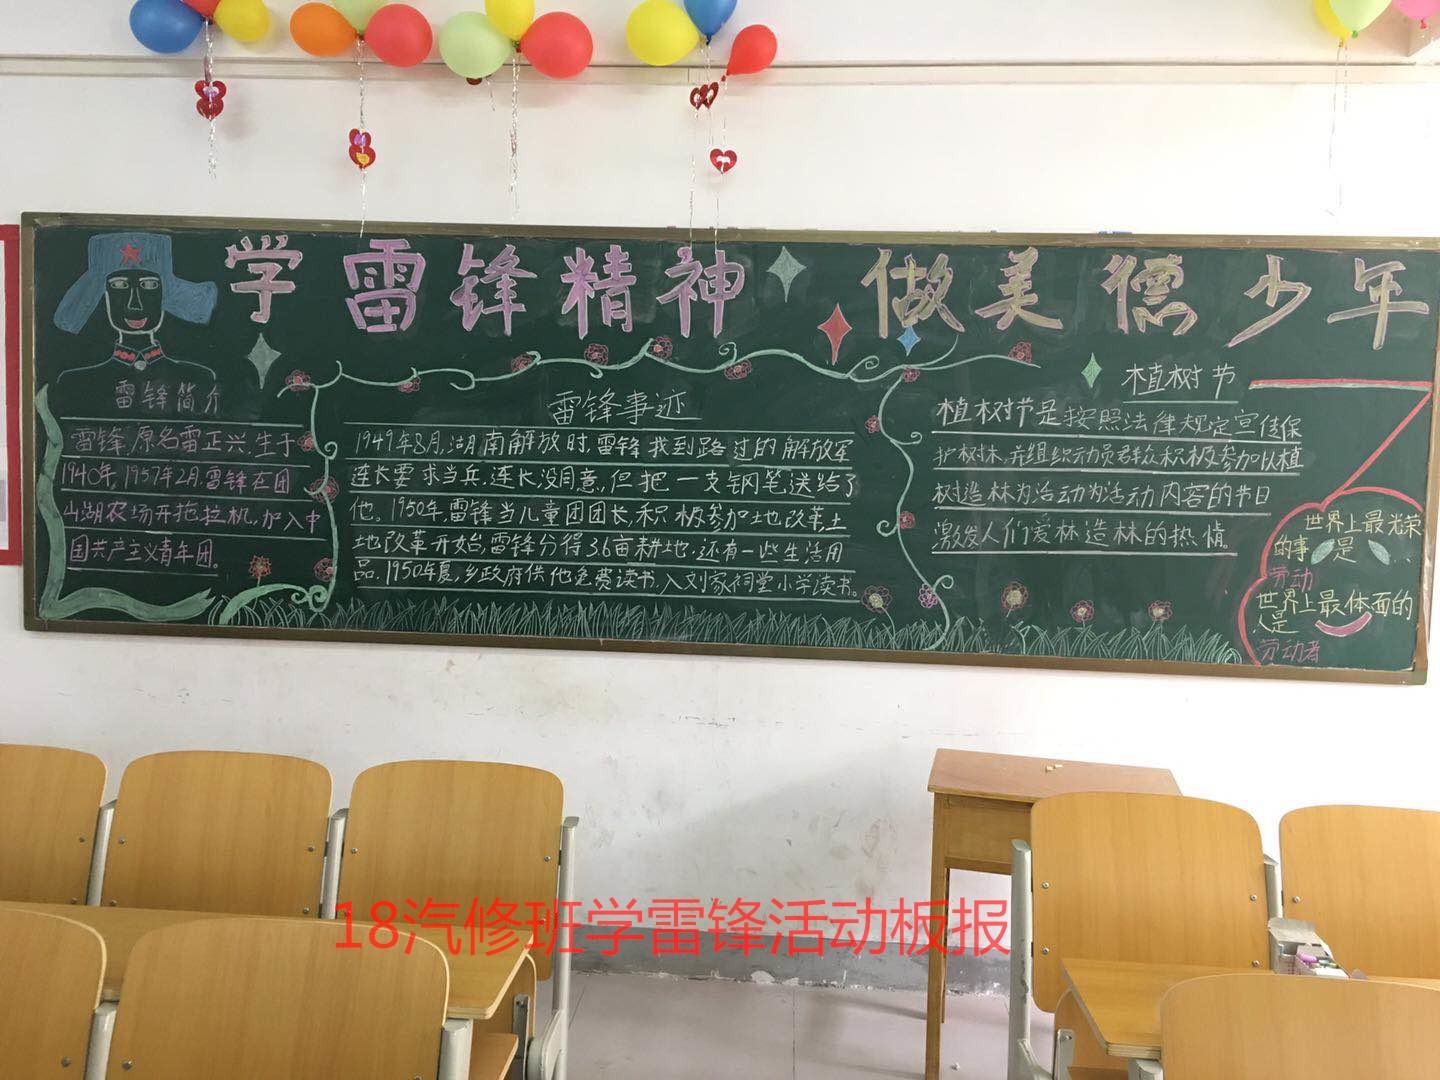 学雷锋精神 做美德少年
雷锋简介
雷锋,原名雷正兴,生于
1940年,1957年2月,雷锋在团
山湖农场开拖拉机,加入中
国共产主义青年团。
雷锋事迹
1949年8月,湖南解放时,雷锋找到路过的解放军
连长要求当兵,连长没同意,但把一支钢笔送给了
他。1950年,雷锋当儿童团团长,积极参加地改革,土
地改革开始,雷锋分得3.6亩耕地,还有一些生活用
品.1950年夏,乡政府供他免费读书,入刘家祠堂小学读书。
植树节
植树节是按照法律规定宣传保
护树木,并组织动员群众积极参加以植
树造林为活动为活动内容的节日
激发人们爱林造林的热情。
世界上最光荣
的事是
劳动
世界上最体面的
人是
劳动者
18汽修班学雷锋活动板报